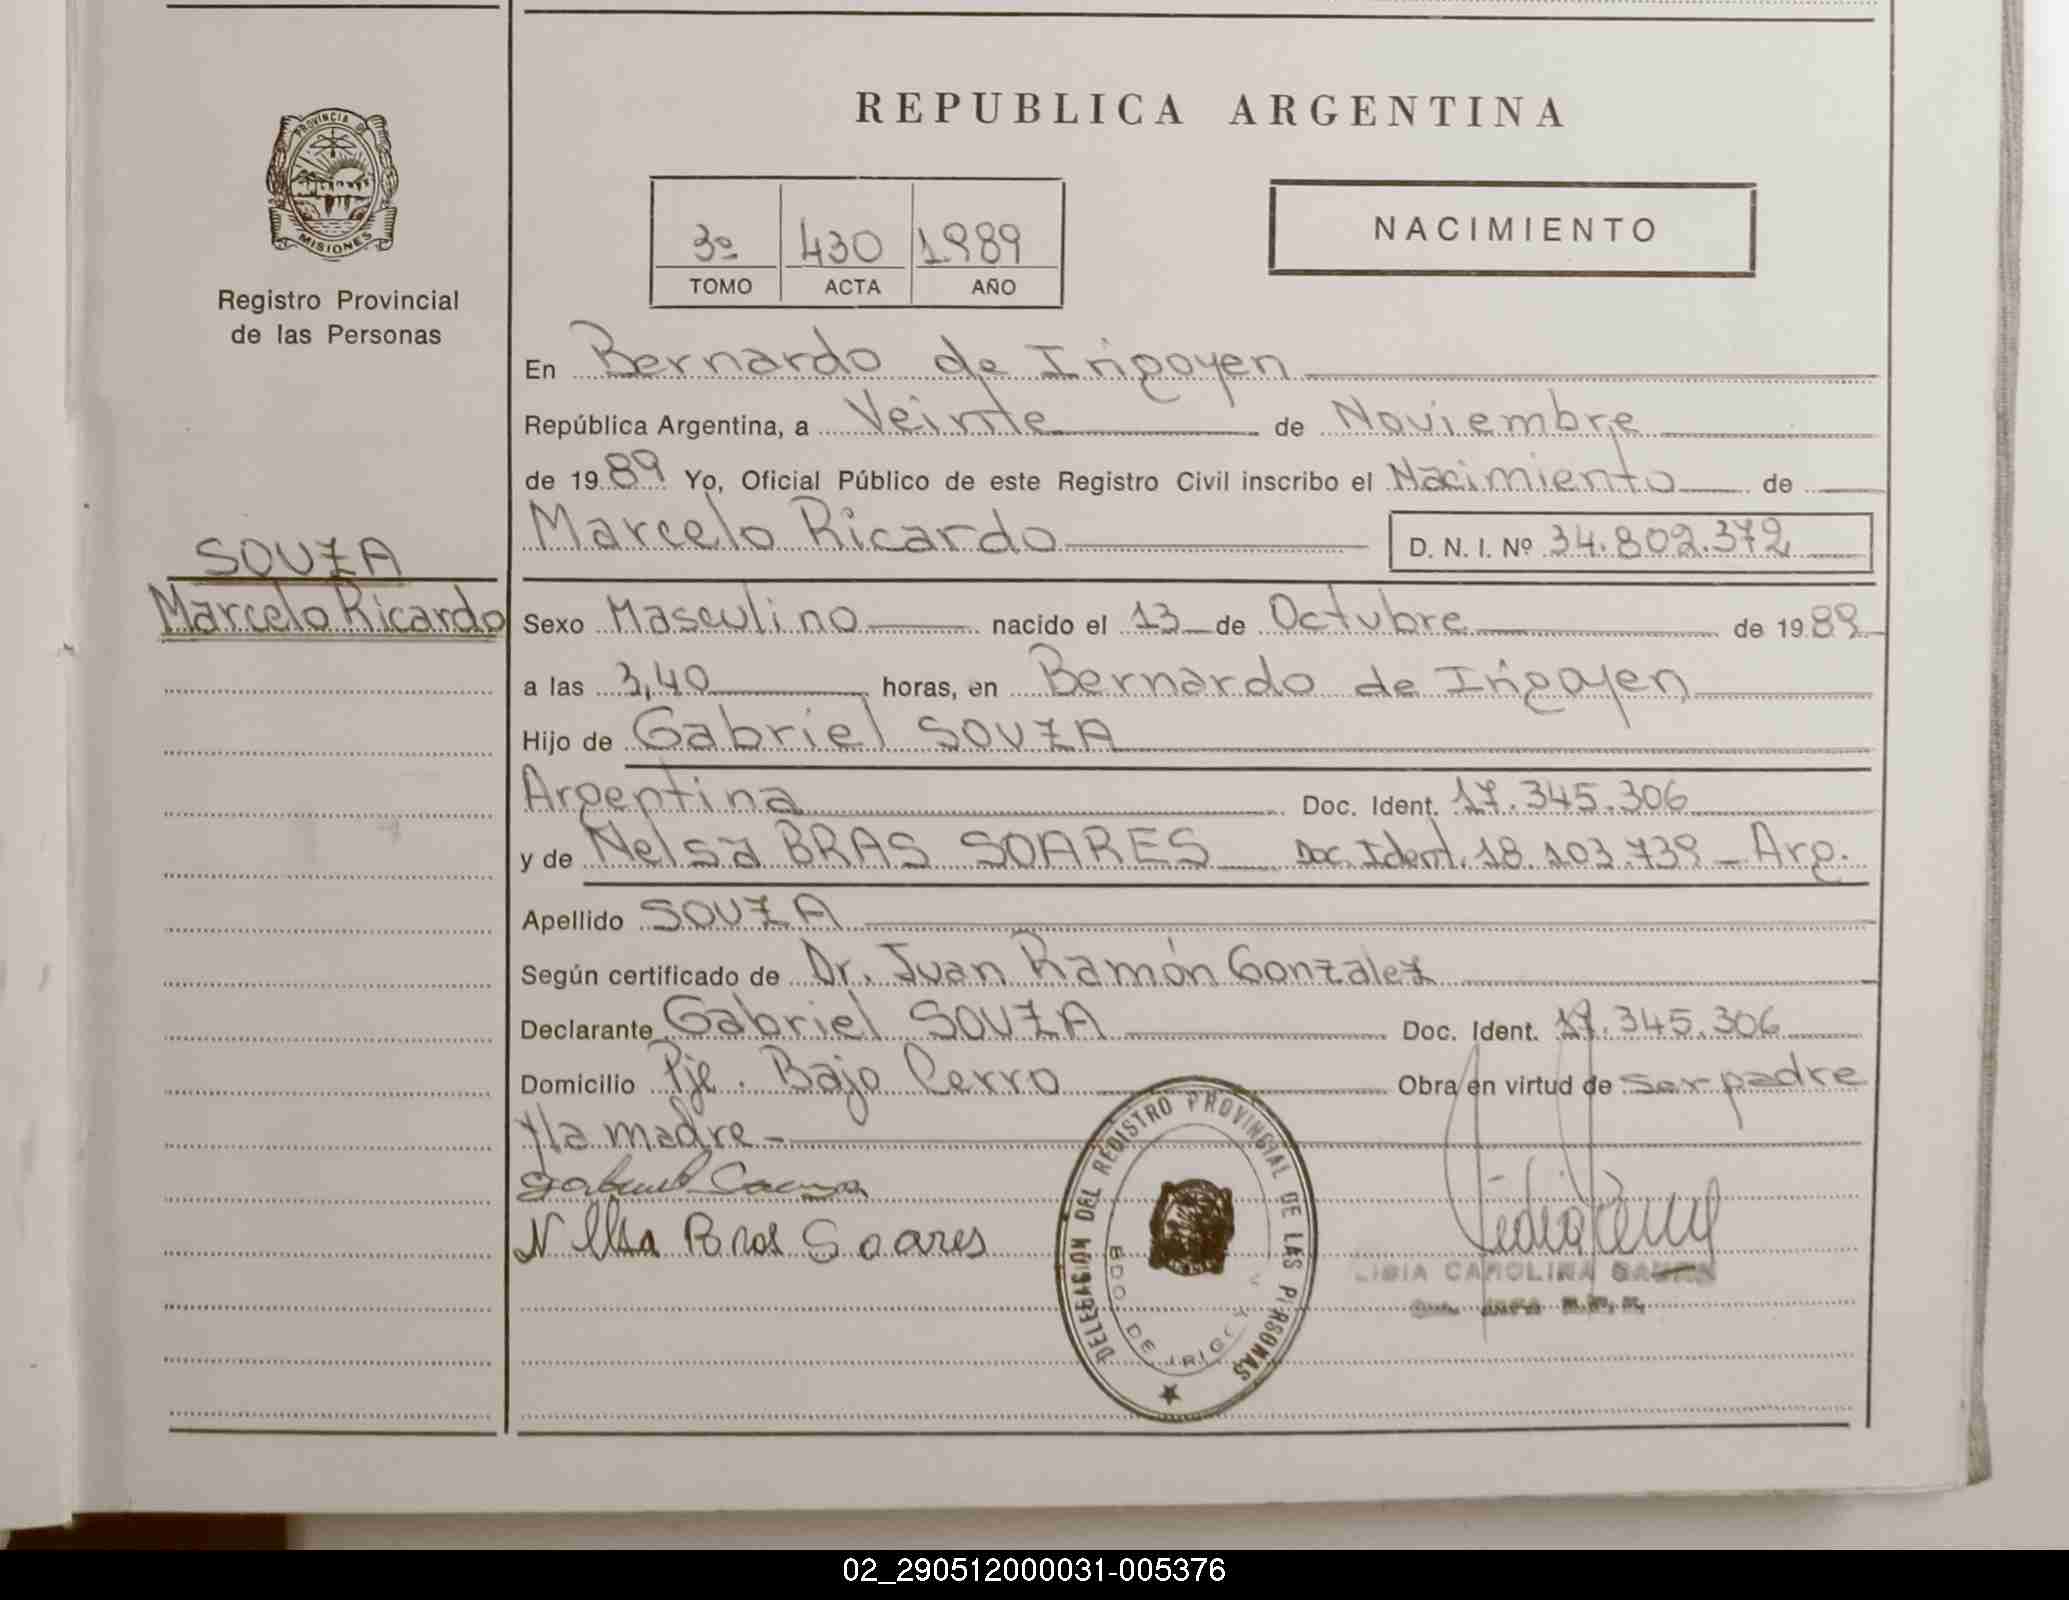 REPUBLICA ARGENTINA
PROVINCIA DE
MISIONES
Registro Provincial
de las Personas
3º 430 1989
TOMO ACTA AÑO
NACIMIENTO
En Bernardo de Irigoyen
República Argentina, a Veinte de Noviembre
de 1989 Yo, Oficial Público de este Registro Civil inscribo el Nacimiento de
Marcelo Ricardo D. N. I. Nº 34.802.372
SOUZA
Marcelo Ricardo
Sexo Masculino nacido el 13 de Octubre de 1989
a las 3,40 horas, en Bernardo de Irigoyen
Hijo de Gabriel SOUZA
Argentina Doc. Ident. 17.345.306
y de Nelsa BRAS SOARES Doc. Ident. 18.103.739 - Arg.
Apellido SOUZA
Según certificado de Dr. Juan Ramón Gonzalez
Declarante Gabriel SOUZA Doc. Ident. 17.345.306
Domicilio Pje. Bajo Cerro Obra en virtud de ser padre
y la madre -
Nellsa Bras Soares
DELEGACION DEL REGISTRO PROVINCIAL DE LAS PERSONAS
BDO DE IRIGOY
LIBIA CAROLINA
02_290512000031-005376